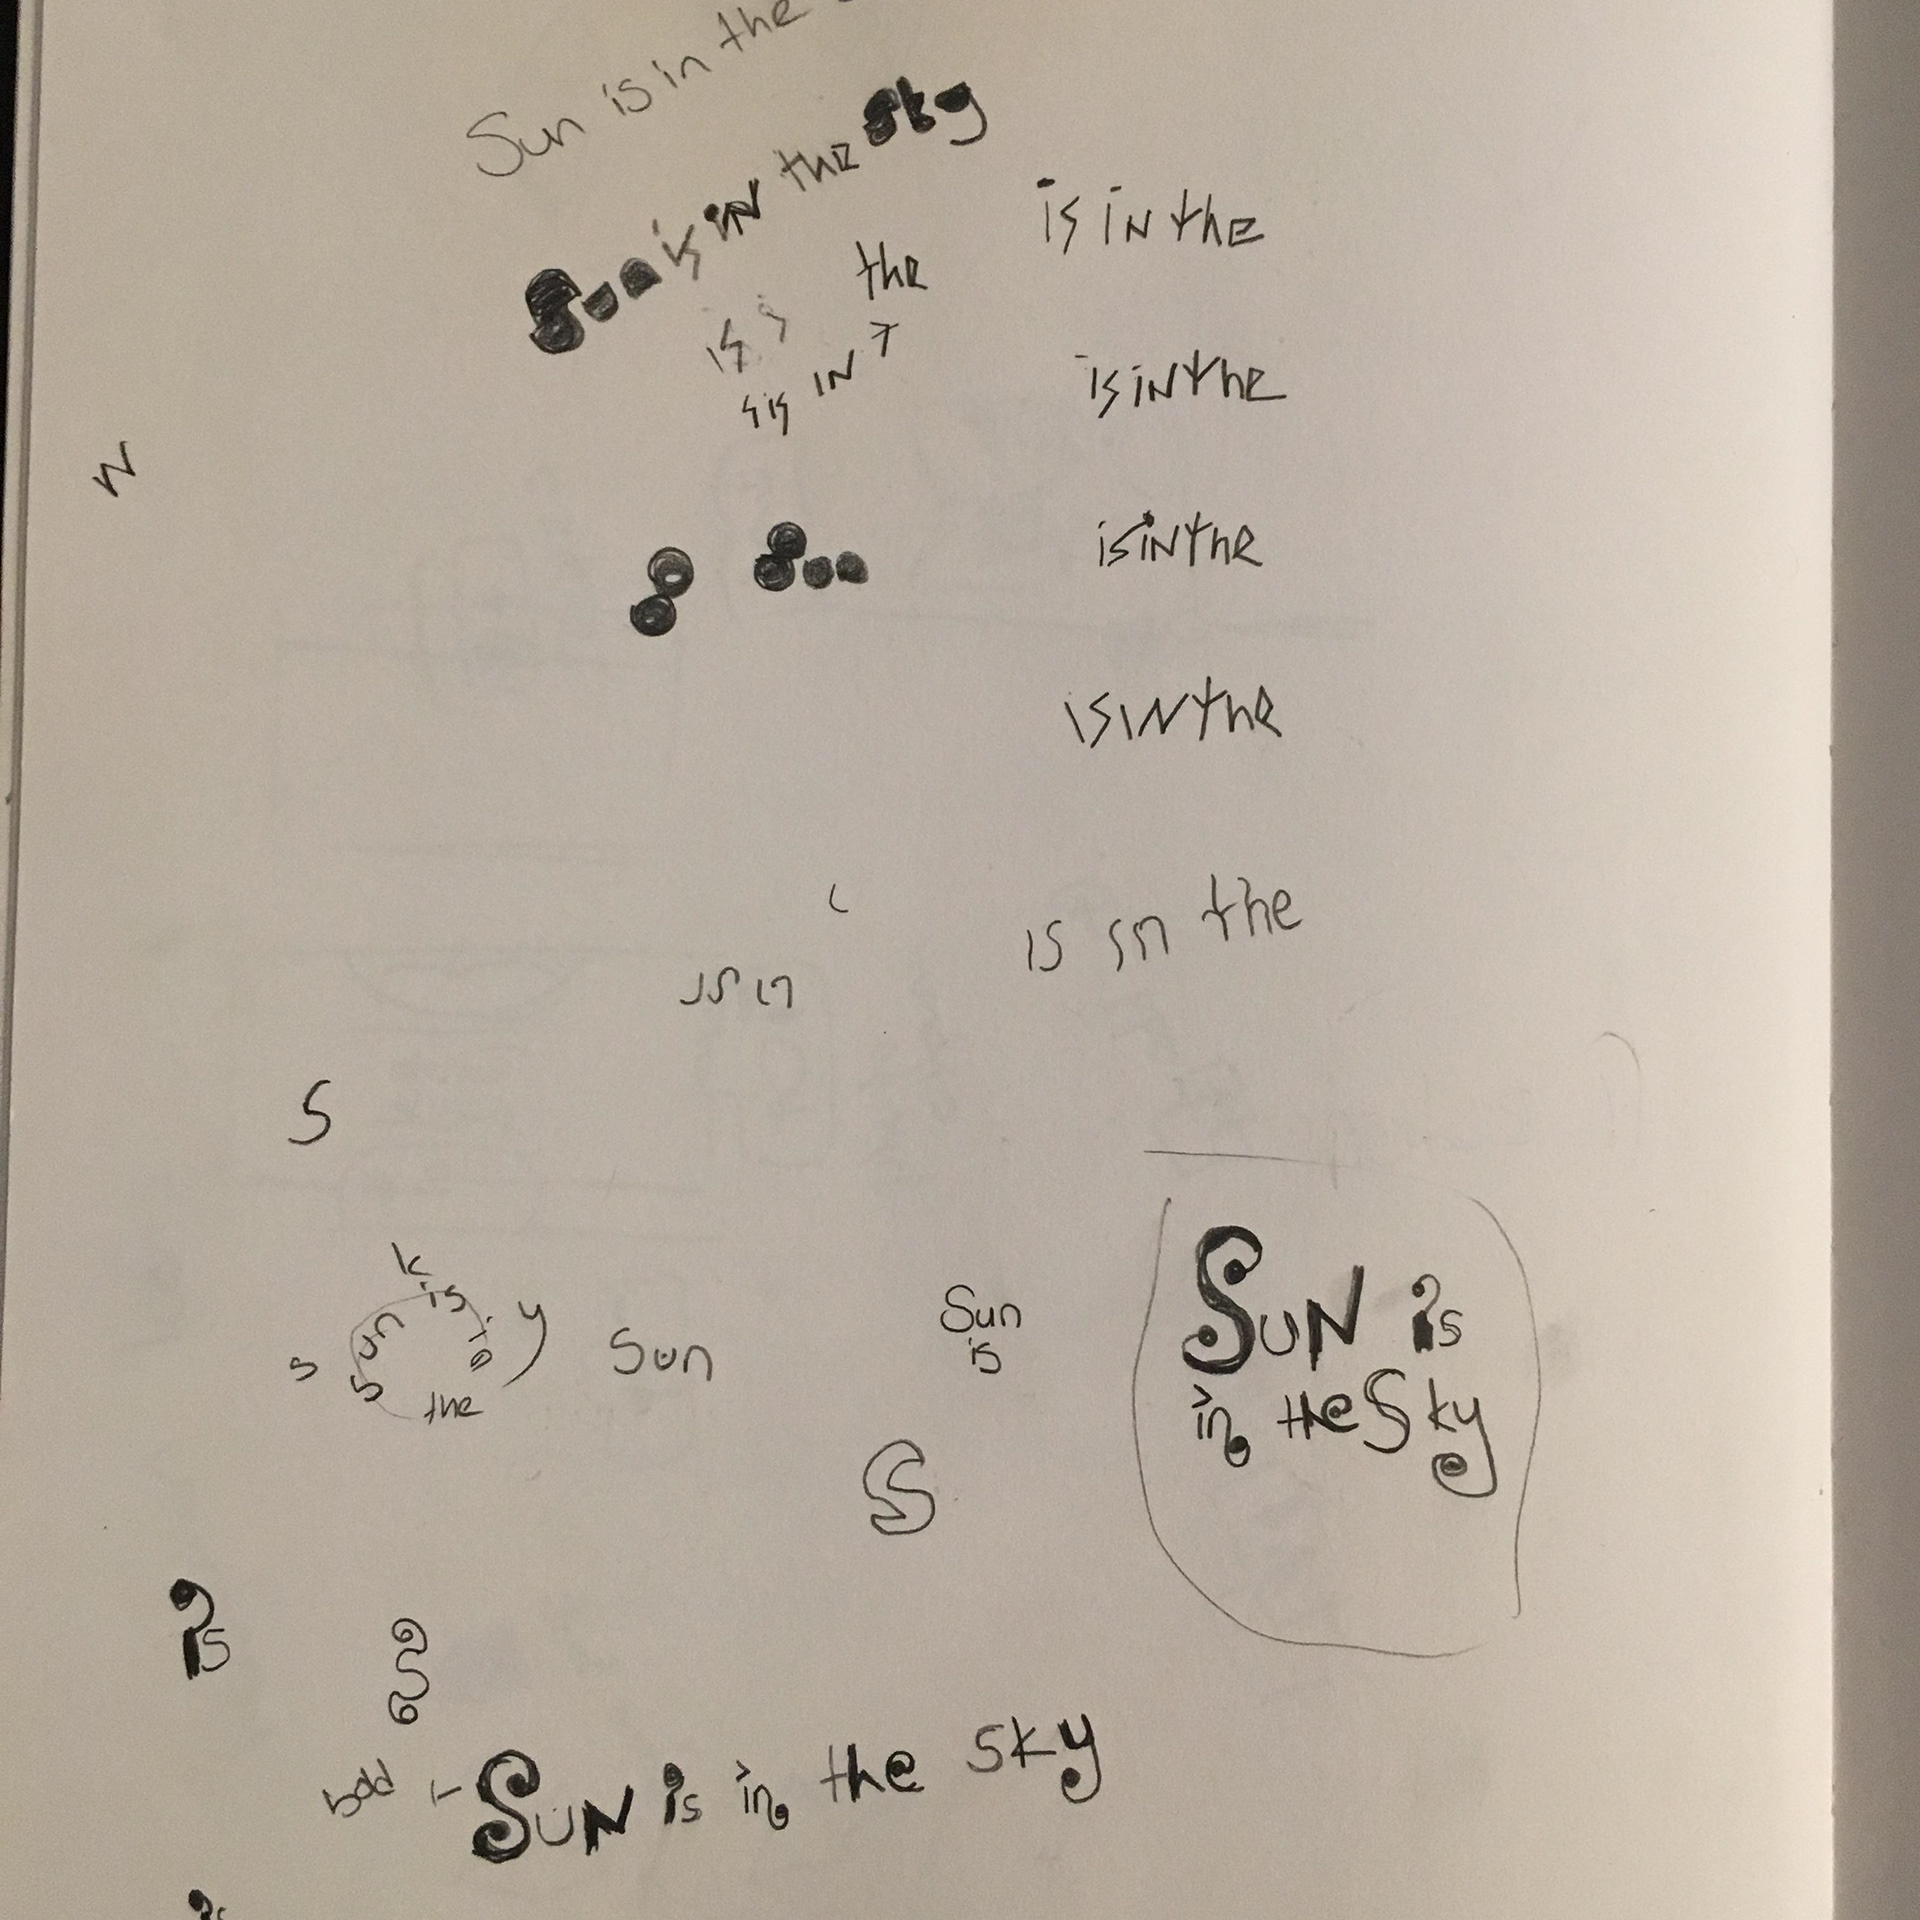 Sun is in the
Sun is in the sky
is in the
the
is s
s is IN T
is in the
N
is in the
Sun
is in the
is in the
is in
S
k
is
y
Sun
s
the
Sun
Sun
is
SUN is
in the Sky
S
is
bold
SUN is in the sky
is